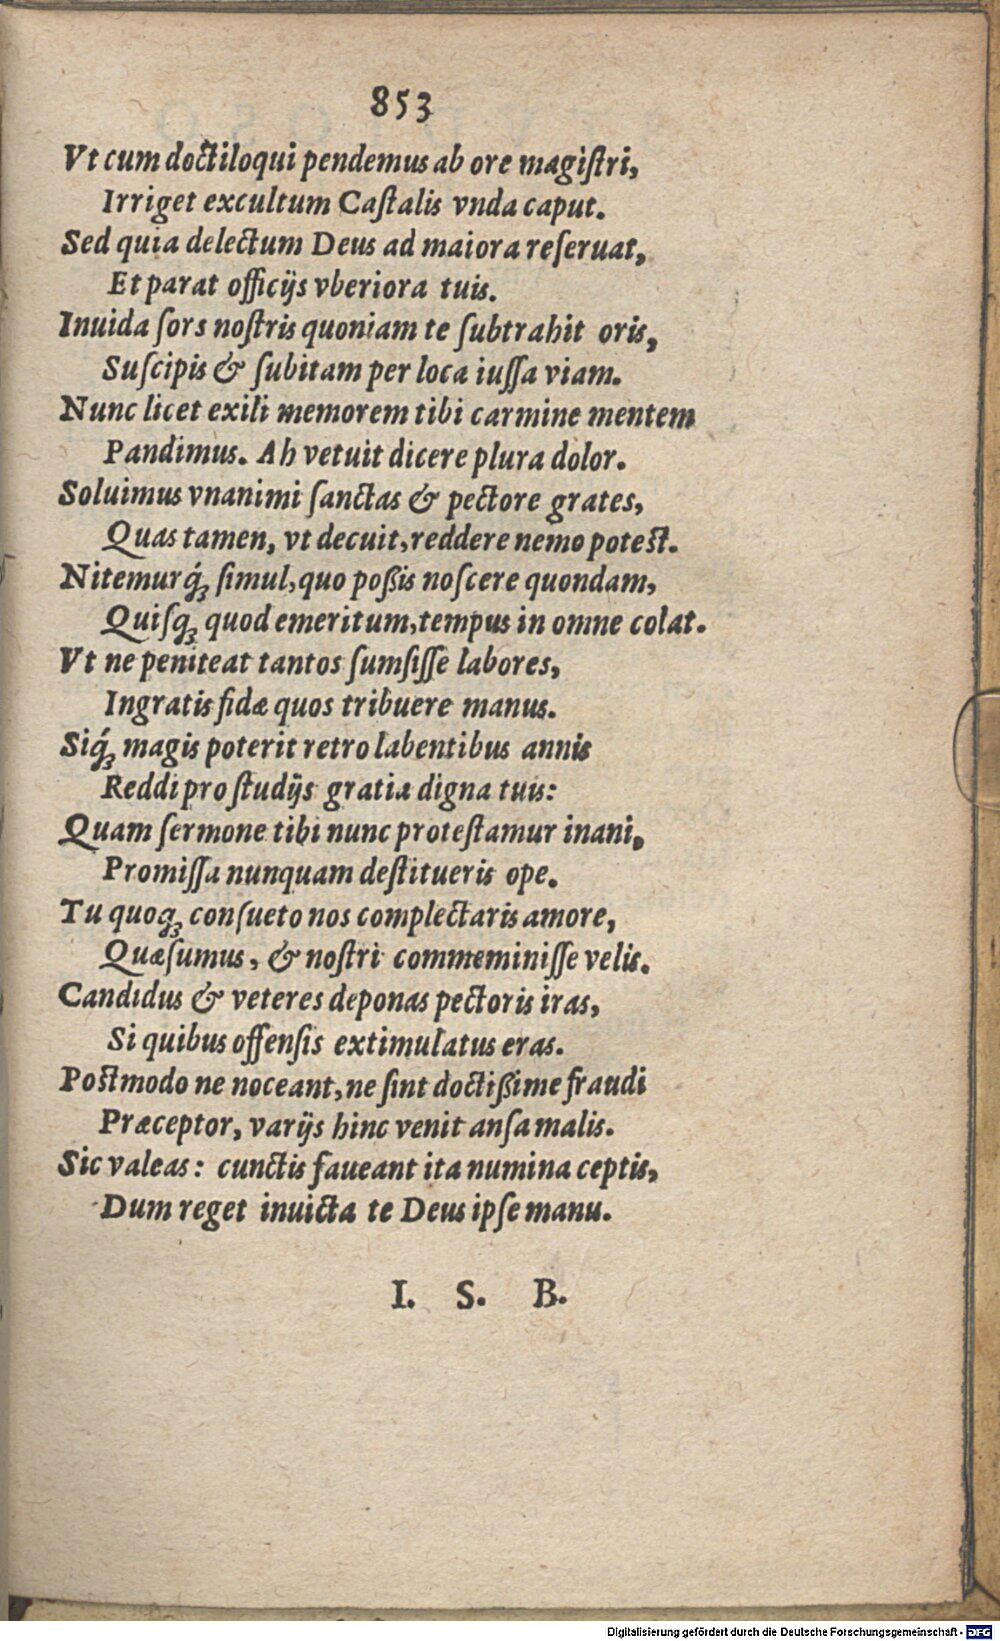 853
Vt cum doctiloqui pendemus ab ore magiſtri,
Irriget excultum Caſtalis vnda caput.
Sed quia delectum Deus ad maiora reſeruat,
Et parat officijs vberiora tuis.
Inuida ſors noſtris quoniam te ſubtrahit oris,
Suſcipis & ſubitam per loca iuſſa viam.
Nunc licet exili memorem tibi carmine mentem
Pandimus. Ah vetuit dicere plura dolor.
Soluimus vnanimi ſanctas & pectore grates,
Quas tamen, vt decuit, reddere nemo poteſt.
Nitemurq́ꝫ ſimul, quo poßis noſcere quondam,
Quiſqꝫ quod emeritum, tempus in omne colat.
Vt ne peniteat tantos ſumſiſſe labores,
Ingratis fidæ quos tribuere manus.
Siq́ꝫ magis poterit retro labentibus annis
Reddi pro ſtudijs gratia digna tuis:
Quam ſermone tibi nunc proteſtamur inani,
Promiſſa nunquam deſtitueris ope.
Tu quoqꝫ conſueto nos complectaris amore,
Quæſumus, & noſtri commeminiſſe velis.
Candidus & veteres deponas pectoris iras,
Si quibus offenſis extimulatus eras.
Poſtmodo ne noceant, ne ſint doctißime fraudi
Præceptor, varijs hinc venit anſa malis.
Sic valeas: cunctis faueant ita numina ceptis,
Dum reget inuicta te Deus ipſe manu.
I. S. B.
Digitalisierung gefördert durch die Deutsche Forschungsgemeinschaft - DFG